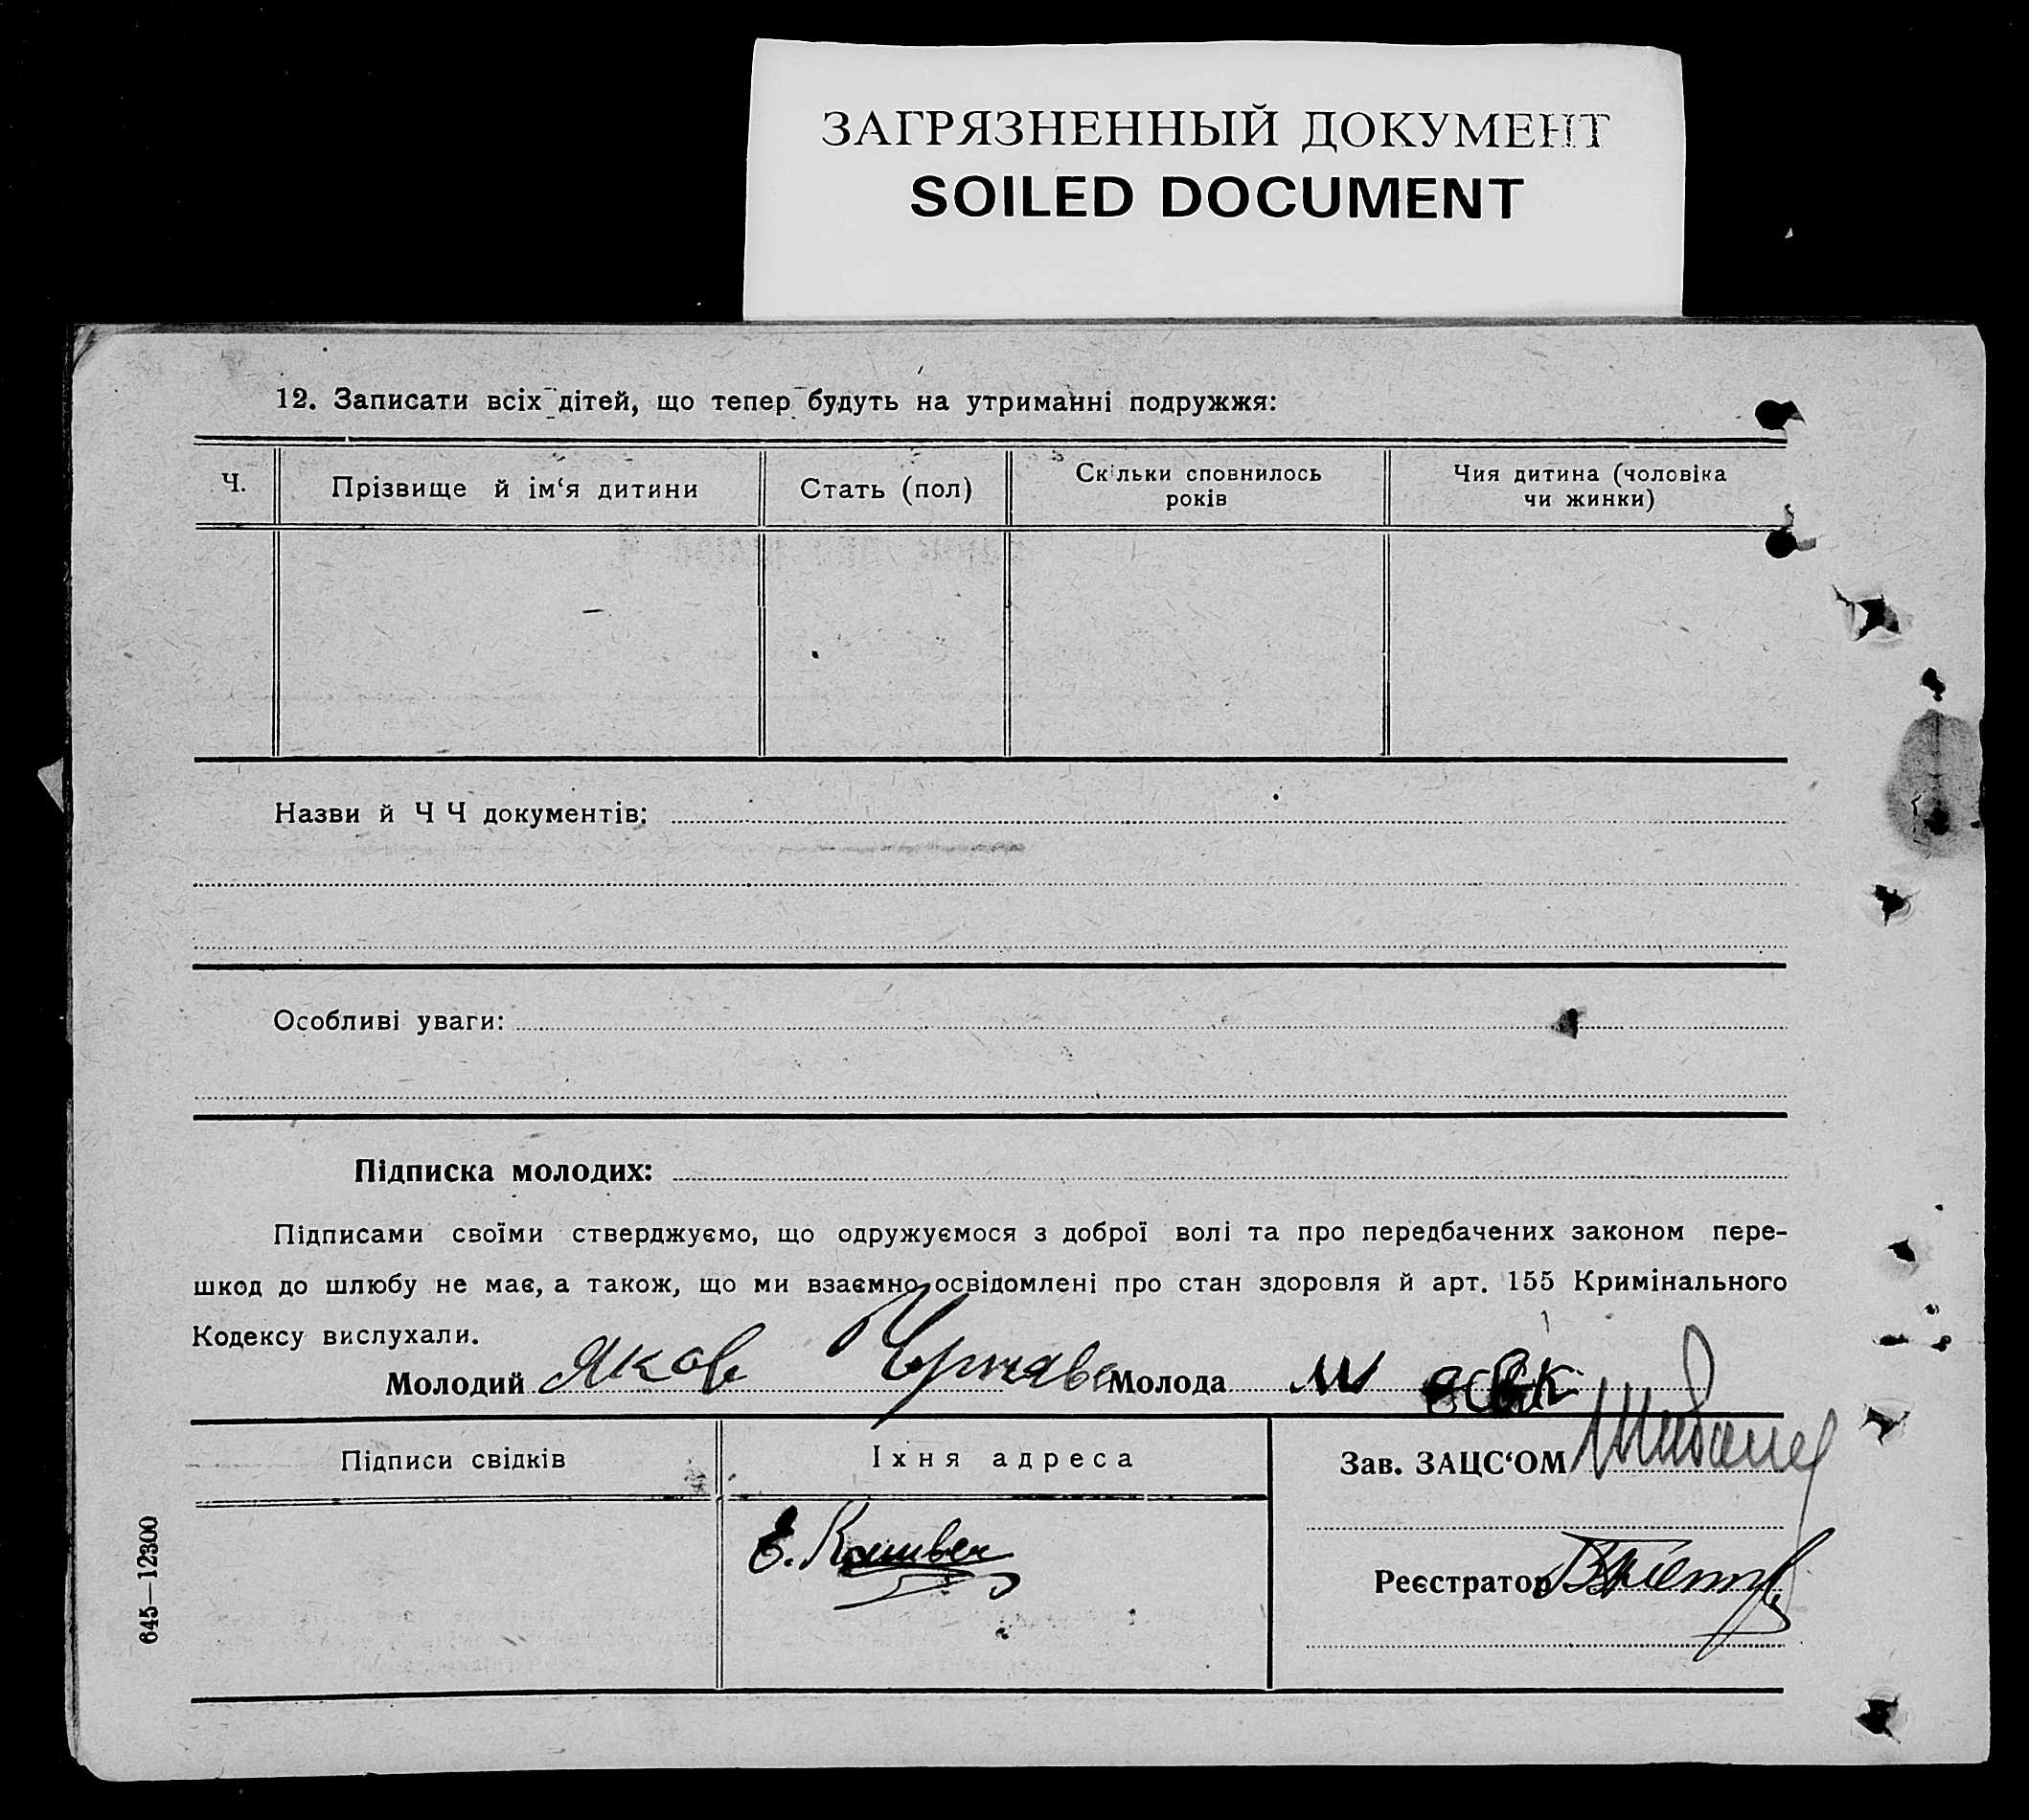 ЗАГРЯЗНЕННЫЙ ДОКУМЕНТ
SOILED DOCUMENT
12. Записати всіх дітей, що тепер будуть на утриманні подружжя:
Ч.
Прізвище й ім‘я дитини
Стать (пол)
Скільки сповнилось
років
Чия дитина (чоловіка
чи жинки)
Назви й Ч Ч документів:
Особливі уваги:
Підписка молодих:
Підписами своїми стверджуємо, що одружуємося з доброї волі та про передбачених законом пере-
шкод до шлюбу не має, а також, що ми взаємно освідомлені про стан здоровля й арт. 155 Кримінального
Кодексу вислухали.
Молодий Яков
Молода
Підписи свідків
Їхня адреса
Зав. ЗАЦС‘ОМ
Е.
Реєстратор
645—12300